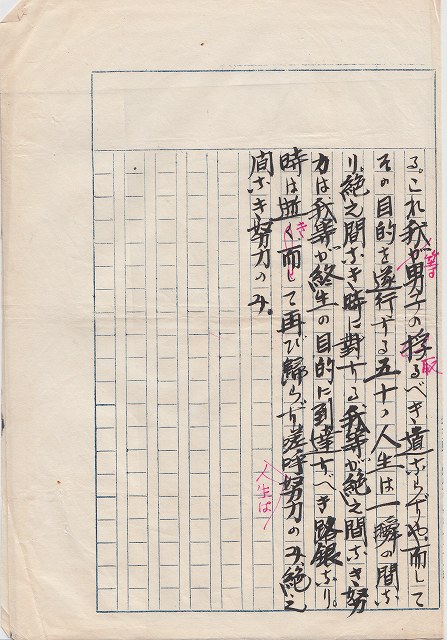 る。これ我が男子の採るべき道ならずや而して
等
取
その目的を遂行する五十の人生は一瞬の間な
り、絶え間なき時に對する我等が絶え間なき努
力は我等が終生の目的に到達すべき路銀なり。
時は逝く而して再び歸らず嗟呼努力のみ絶え
き
人生は
間なき努力のみ。